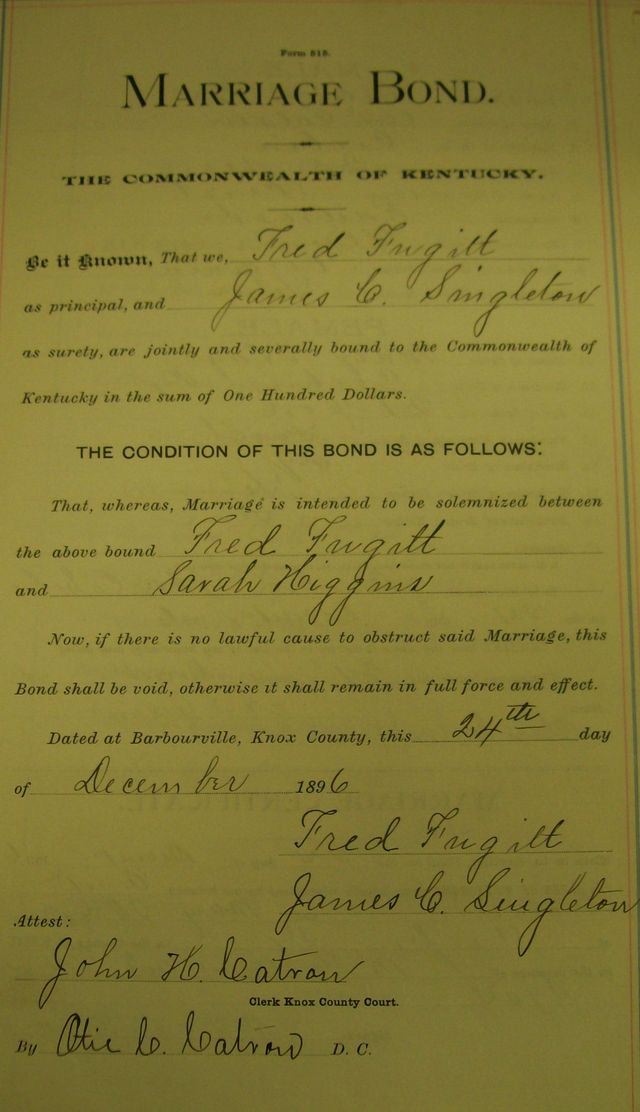 Form 515.
MARRIAGE BOND.
THE COMMONWEALTH OF KENTUCKY.
Be it Known, That we, Fred Fugitt
as principal, and James C. Singleton
as surety, are jointly and severally bound to the Commonwealth of
Kentucky in the sum of One Hundred Dollars.
THE CONDITION OF THIS BOND IS AS FOLLOWS:
That, whereas, Marriage is intended to be solemnized between
the above bound Fred Fugitt
and Sarah Higgins
Now, if there is no lawful cause to obstruct said Marriage, this
Bond shall be void, otherwise it shall remain in full force and effect.
Dated at Barbourville, Knox County, this 24th day
of December 1896
Fred Fugitt
James C. Singleton
Attest:
John H. Catron
Clerk Knox County Court.
By Otie C. Catron D. C.